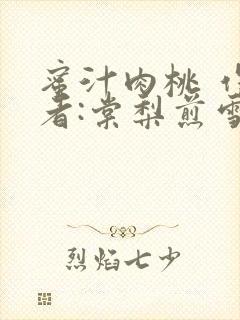 蜜汁肉桃 作
者:棠梨煎雪
烈焰七少